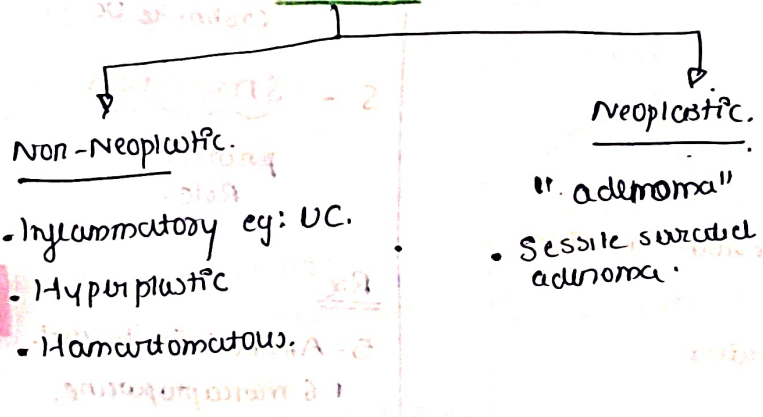 Non-Neoplastic.
• Inflammatory eg: UC.
• Hyperplastic
• Hamartomatous.
Neoplastic.
"adenoma"
• Sessile serrated
adenoma.